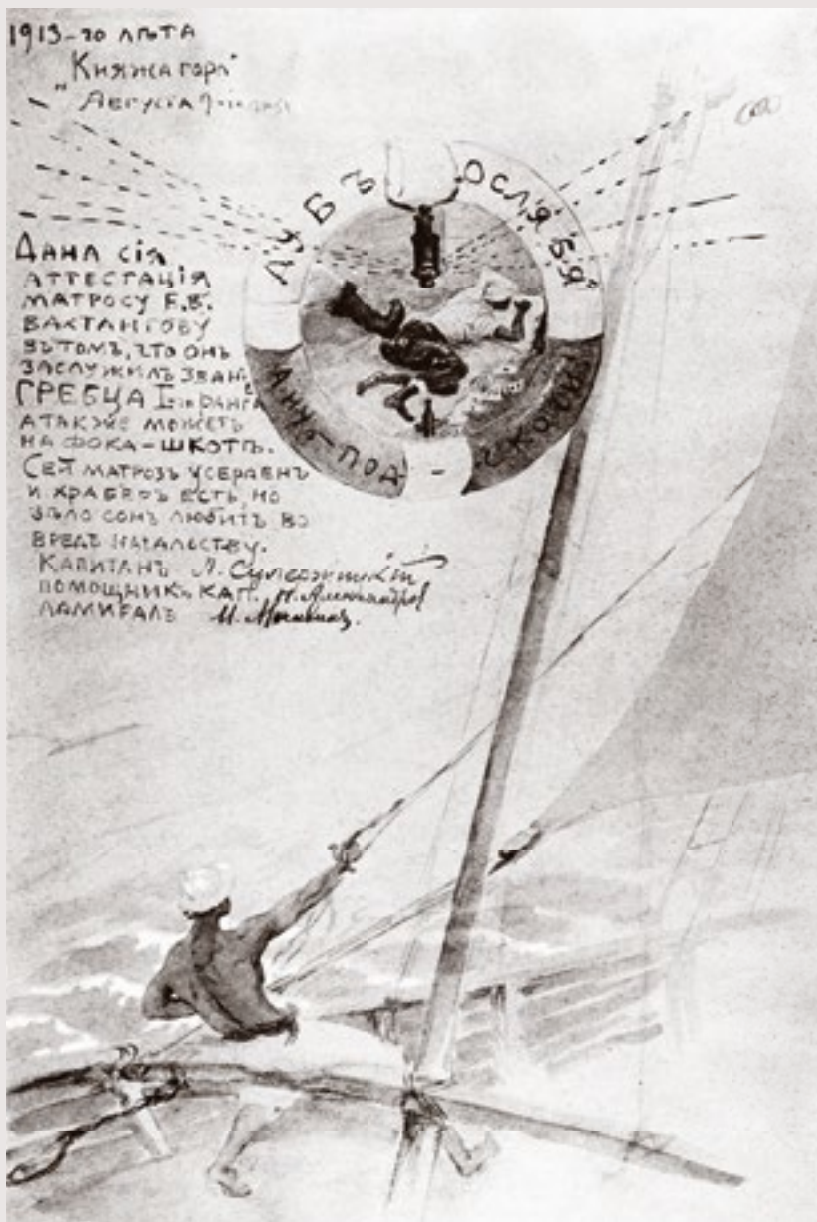 1913-го лѣта
"Княжа гора"
Августа
ДУБЪ "ОСЛЯБЯ"
АНУ-ПОД-
Дана сія
аттестація
матросу Е.Б.
Вахтангову
въ томъ, что онъ
заслужилъ
гребца I-го ранга
а также можетъ
на фока-шкотѣ.
Сей матрозъ усерденъ
и храбръ есть, но
зѣло сонъ любитъ во
вредъ начальству.
Капитанъ Л. Сулержицкій
Помощникъ Кап. Н. Александров
Ламиралъ И. Москвин